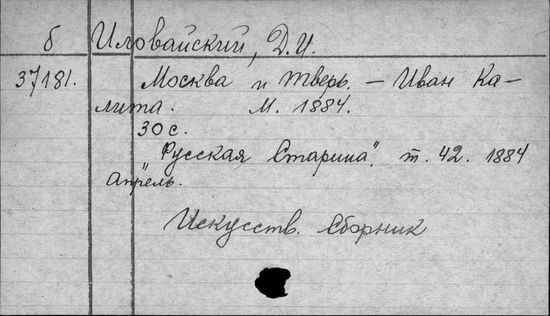 б Иловайский, Д.И.
37181. Москва и Тверь. — Иван Ка-
лита. М. 1884.
30 с.
"Русская Старина", т. 42. 1884
Апрель.
Искусств. Сборник